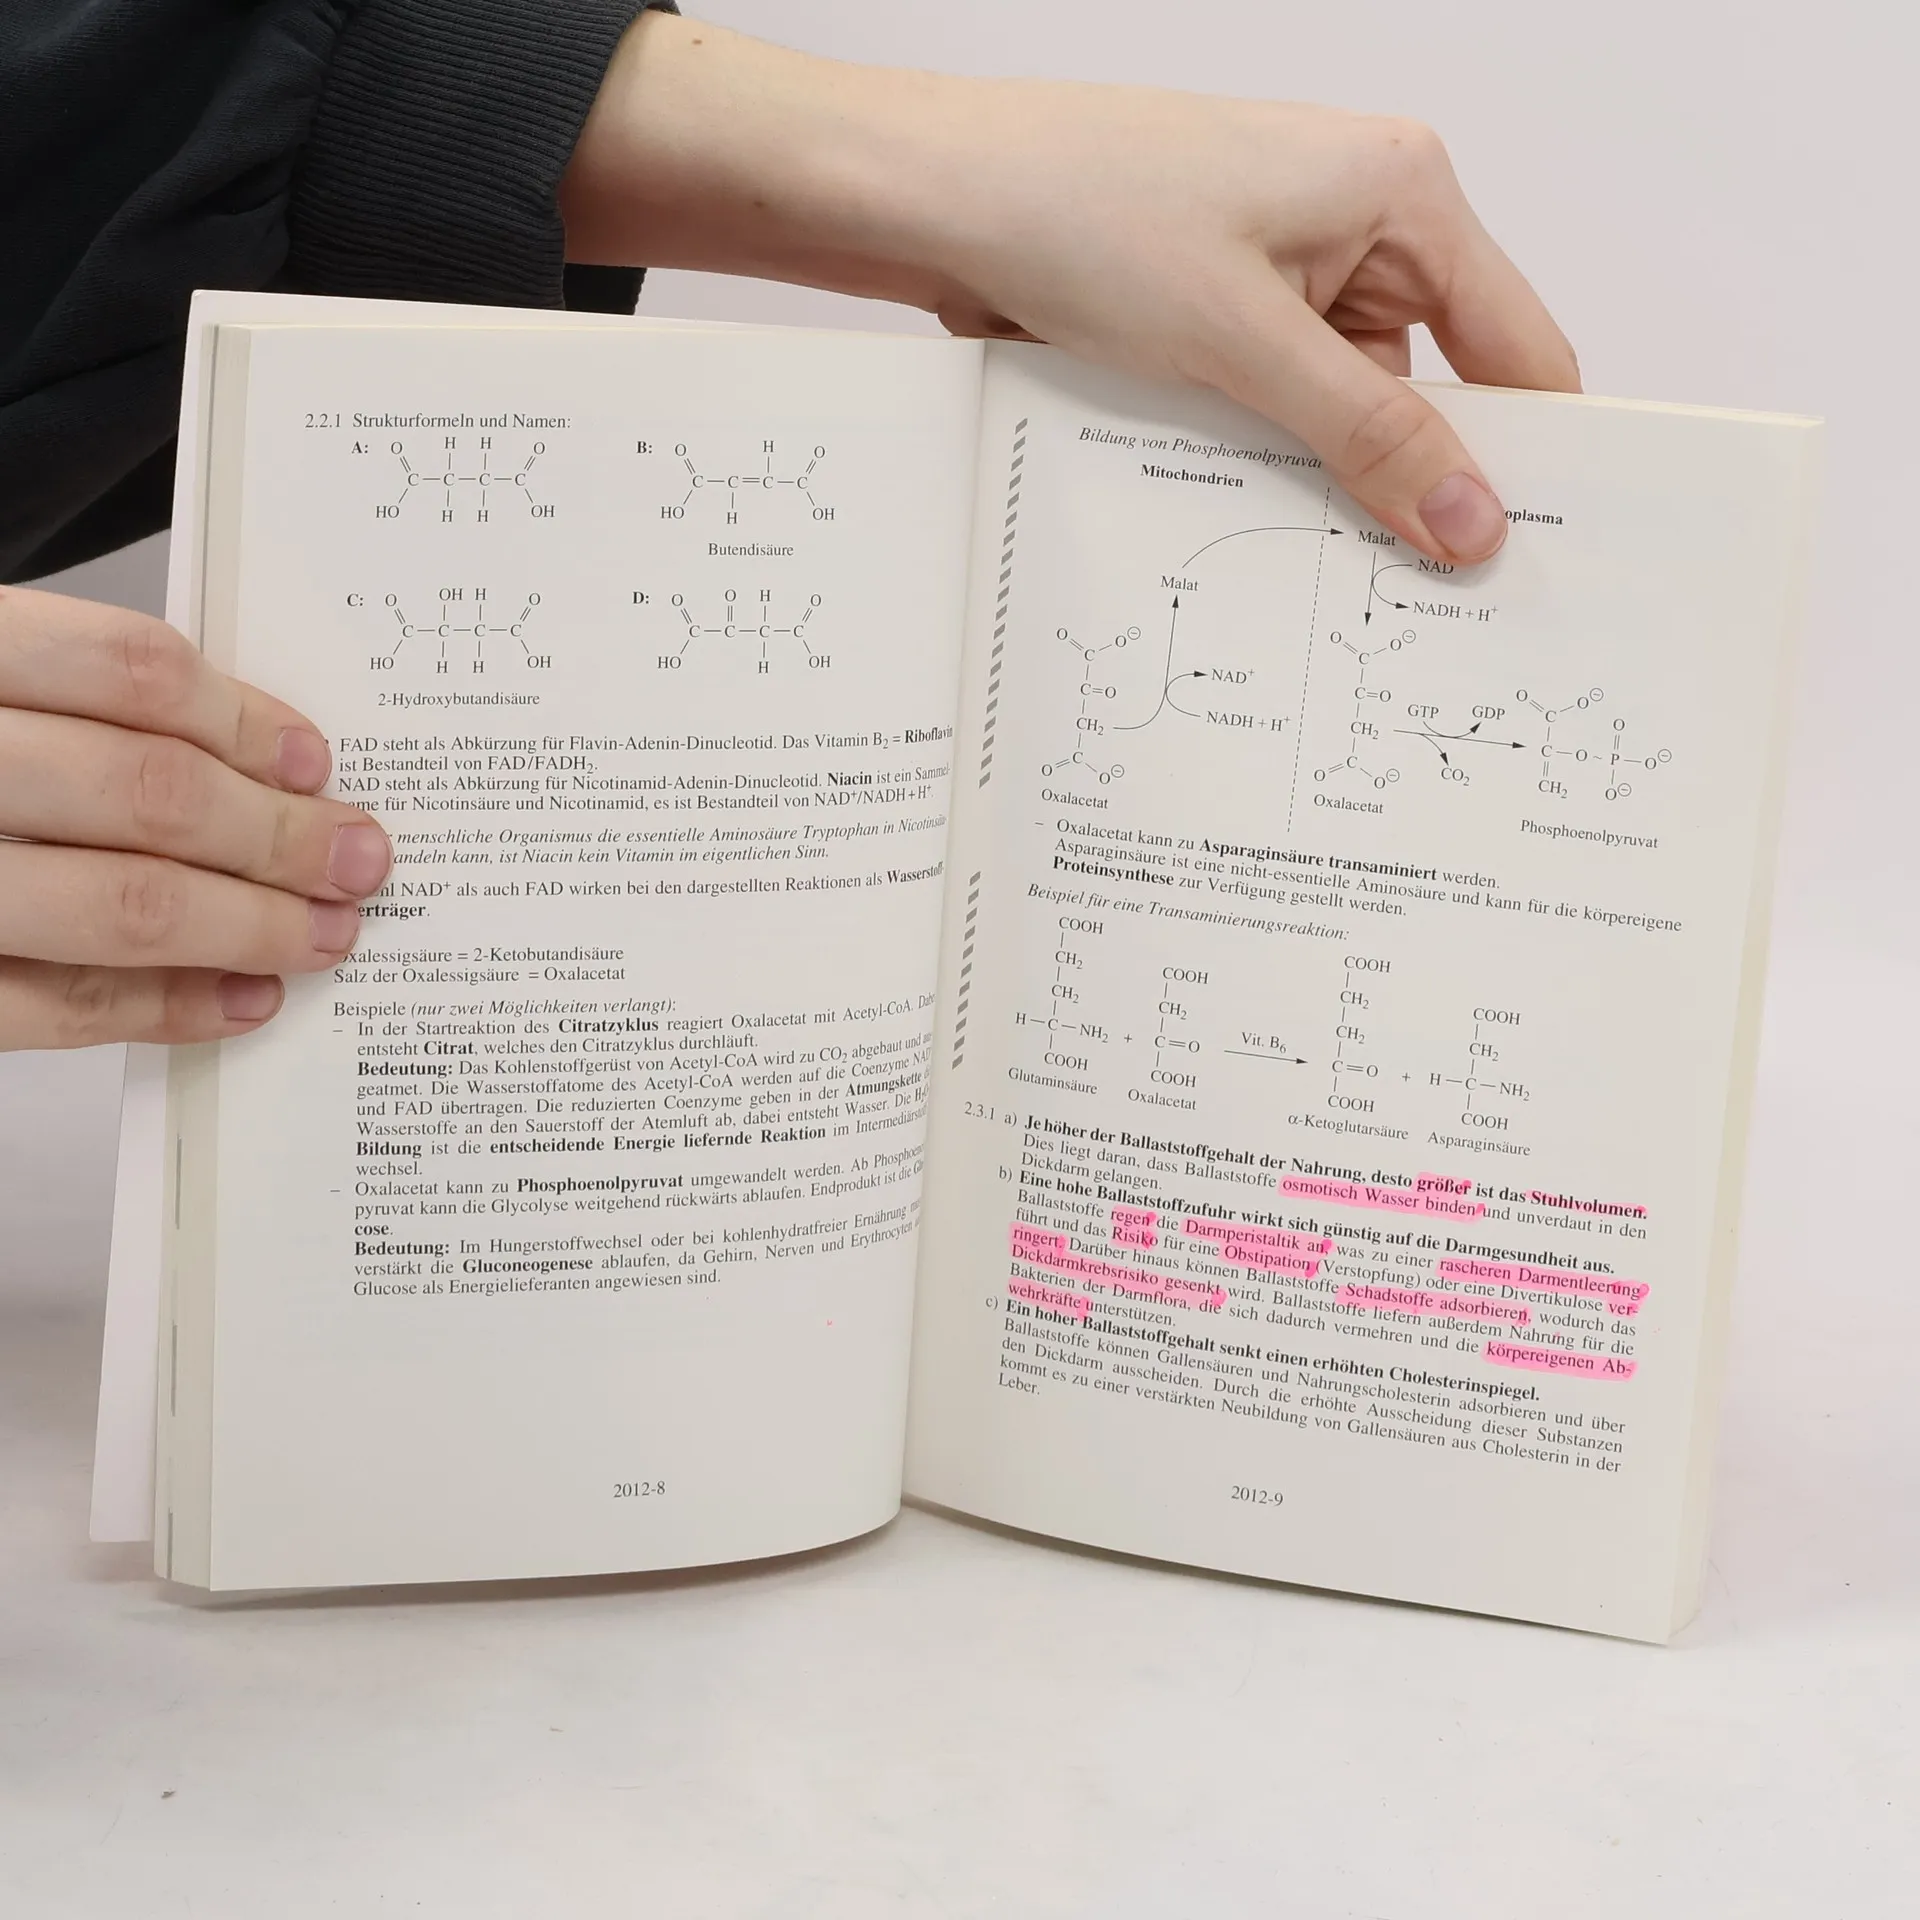 2.2.1 Strukturformeln und Namen:
A: O H H O
C–C–C–C
HO H H OH
B: O H O
C–C=C–C
HO H OH
Butendisäure
C: O OH H O
C–C–C–C
HO H H OH
2-Hydroxybutandisäure
D: O O H O
C–C–C–C
HO H OH
FAD steht als Abkürzung für Flavin-Adenin-Dinucleotid. Das Vitamin B₂ = Riboflavin
ist Bestandteil von FAD/FADH₂.
NAD steht als Abkürzung für Nicotinamid-Adenin-Dinucleotid. Niacin ist ein Sammel-
für Nicotinsäure und Nicotinamid, es ist Bestandteil von NAD⁺/NADH+H⁺.
menschliche Organismus die essentielle Aminosäure Tryptophan in
kann, ist Niacin kein Vitamin im eigentlichen Sinn.
NAD⁺ als auch FAD wirken bei den dargestellten Reaktionen als Wasserstoff-
erträger.
Oxalessigsäure = 2-Ketobutandisäure
Salz der Oxalessigsäure = Oxalacetat
Beispiele (nur zwei Möglichkeiten verlangt):
– In der Startreaktion des Citratzyklus reagiert Oxalacetat mit Acetyl-CoA.
entsteht Citrat, welches den Citratzyklus durchläuft.
Bedeutung: Das Kohlenstoffgerüst von Acetyl-CoA wird zu CO₂ abgebaut und
geatmet. Die Wasserstoffatome des Acetyl-CoA werden auf die Coenzyme
und FAD übertragen. Die reduzierten Coenzyme geben in der Atmungskette
Wasserstoffe an den Sauerstoff der Atemluft ab, dabei entsteht Wasser. Die
Bildung ist die entscheidende Energie liefernde Reaktion im
wechsel.
– Oxalacetat kann zu Phosphoenolpyruvat umgewandelt werden. Ab
pyruvat kann die Glycolyse weitgehend rückwärts ablaufen. Endprodukt ist die
cose.
Bedeutung: Im Hungerstoffwechsel oder bei kohlenhydratfreier Ernährung
verstärkt die Gluconeogenese ablaufen, da Gehirn, Nerven und Erythrocyten
Glucose als Energielieferanten angewiesen sind.
2012-8
Bildung von Phosphoenolpyruvat
Mitochondrien oplasma
Malat
NAD
NADH + H⁺
Malat
NAD⁺
NADH + H⁺
O C O⊖
C=O
CH₂
O C O⊖
Oxalacetat
O C O⊖
C=O
CH₂
O C O⊖
Oxalacetat
GTP GDP
CO₂
O C O⊖ O
C–O~P–O⊖
CH₂ O⊖
Phosphoenolpyruvat
– Oxalacetat kann zu Asparaginsäure transaminiert werden.
Asparaginsäure ist eine nicht-essentielle Aminosäure und kann für die körpereigene
Proteinsynthese zur Verfügung gestellt werden.
Beispiel für eine Transaminierungsreaktion:
COOH
CH₂
CH₂
H–C–NH₂
COOH
Glutaminsäure
+
COOH
CH₂
C=O
COOH
Oxalacetat
Vit. B₆
COOH
CH₂
CH₂
C=O
COOH
α-Ketoglutarsäure
+
COOH
CH₂
H–C–NH₂
COOH
Asparaginsäure
2.3.1 a) Je höher der Ballaststoffgehalt der Nahrung, desto größer ist das Stuhlvolumen.
Dies liegt daran, dass Ballaststoffe osmotisch Wasser binden und unverdaut in den
Dickdarm gelangen.
b) Eine hohe Ballaststoffzufuhr wirkt sich günstig auf die Darmgesundheit aus.
Ballaststoffe regen die Darmperistaltik an, was zu einer rascheren Darmentleerung
führt und das Risiko für eine Obstipation (Verstopfung) oder eine Divertikulose ver-
ringert. Darüber hinaus können Ballaststoffe Schadstoffe adsorbieren, wodurch das
Dickdarmkrebsrisiko gesenkt wird. Ballaststoffe liefern außerdem Nahrung für die
Bakterien der Darmflora, die sich dadurch vermehren und die körpereigenen Ab-
wehrkräfte unterstützen.
c) Ein hoher Ballaststoffgehalt senkt einen erhöhten Cholesterinspiegel.
Ballaststoffe können Gallensäuren und Nahrungscholesterin adsorbieren und über
den Dickdarm ausscheiden. Durch die erhöhte Ausscheidung dieser Substanzen
kommt es zu einer verstärkten Neubildung von Gallensäuren aus Cholesterin in der
Leber.
2012-9